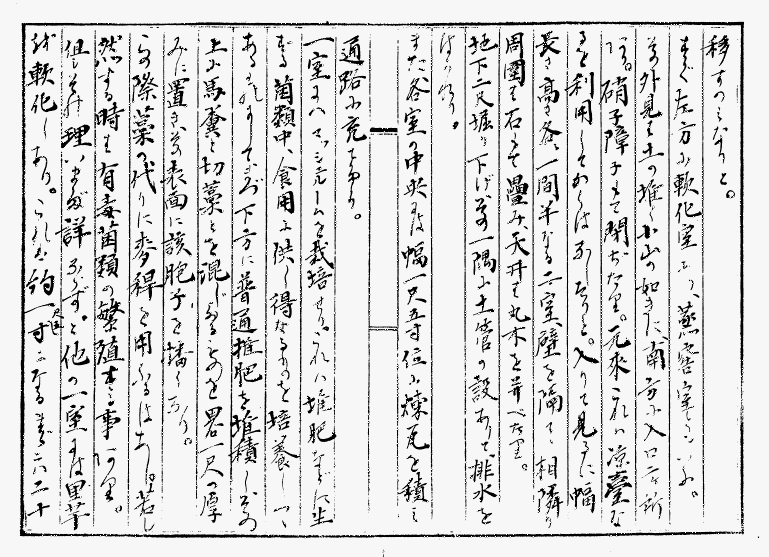 移すつもりなりと。
まづ左方に軟化室あり、蒸窖室といふ。
其外見は土の堆く小山の如きに南方に入口二ヶ所
あり。硝子障子もて閉ぢたり。元来これは涼臺な
るを利用してかくはなしたりと。入りて見るに幅
長さ高さ各、一間半なる二室壁を隔てゝ相隣り
周圍は石もて疊み、天井は丸木を并べたり。
地下二尺堀り下げ其の一隅に土管の設ありて排水を
はかれり。
また各室の中央には幅一尺五寸位に煉瓦を積み
通路に充てあり。
一室にハマッシュルームを栽培せり。これハ堆肥などに生
ずる菌類中、食用に供し得るものを培養しつゝ
あるものにしてまづ下方に普通堆肥を堆積し其の
上に馬糞と切藁とを混じたるものを畧一尺の厚
みに置き其表面に該胞子を播くなり。
この際藁の代りに麥稈を用ふるはあし。若し
然する時は有毒菌類の繁殖する事あり。
但し其の理いまだ詳ならずと。他の一室には里芋
を軟化しあり。これは約一寸になるまで六二十